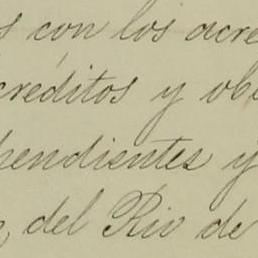 s con los acre
creditos y obl
pendientes y
del Rio de